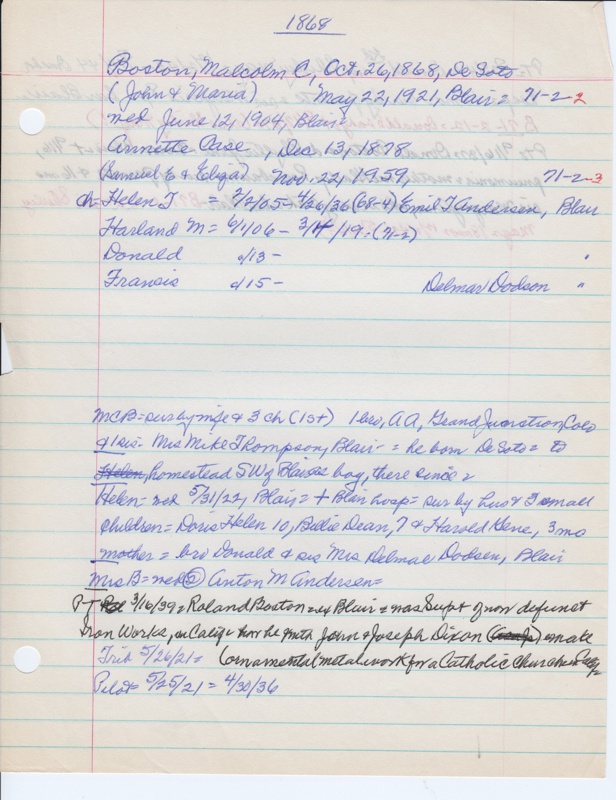 1868
Boston, Malcolm C, Oct. 26, 1868, De Soto
(John & Maria) May 22, 1921, Blair = 71-2-2
med June 12, 1904, Blair =
Annette Case, Dec 13, 1878
(Samuel E & Eliza) Nov. 22, 1959, 71-2-3
ch = Helen I = 2/2/05 - 4/26/36 (68-4) Emil T Andersen, Blair
Harland M = 6/1/06 - 3/14/19 = (71-2)
Donald c/13 - "
Francis c/15 - Delmar Dodson "
MCB = sur by wife & 3 ch (1st) 1 bro, AA, Grand Junction Colo
& 1 sis = Mrs Mike Thompson, Blair = he born De Soto = to
Helen, homestead SW of Blair as boy, there since =
Helen = med 5/31/22, Blair = + Blair hosp = sur by hus & 3 small
children = Doris Helen 10, Billie Dean, 7 & Harold Gene, 3 mo
mother = bro Donald & sis Mrs Delmar Dodson, Blair
Mrs B = med ② Anton M Andersen =
P-T 3/16/39 = Roland Boston = ex Blair = was Supt of now defunct
Iron Works, in Calif now he with John & Joseph Dixon make
Trib 5/26/21 = (ornamental metal work for a Catholic Church
Pilot = 5/25/21 = 4/30/36